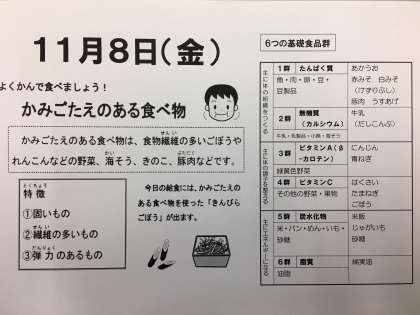 11月8日(金)
よくかんで食べましょう！
かみごたえのある食べ物
かみごたえのある食べ物は、食物繊維の多いごぼうや
れんこんなどの野菜、海そう、きのこ、豚肉などです。
特徴
①固いもの
②繊維の多いもの
③弾力のあるもの
今日の給食には、かみごたえ
のある食べ物を使った「きんぴら
ごぼう」が出ます。
6つの基礎食品群
主に体の組織をつくる
1群 たんぱく質
魚・肉・卵・豆・
豆製品
あかうお
赤みそ 白みそ
(けずりぶし)
豚肉 うすあげ
2群 無機質
(カルシウム)
牛乳・乳製品・小魚・海そう
牛乳
(だしこんぶ)
主に体の調子を整える
3群 ビタミンA(β
-カロテン)
緑黄色野菜
にんじん
青ねぎ
4群 ビタミンC
その他の野菜・果物
はくさい
たまねぎ
ごぼう
主にエネルギーになる
5群 炭水化物
米・パン・めん・いも・
砂糖
米飯
じゃがいも
砂糖
6群 脂質
油脂
綿実油